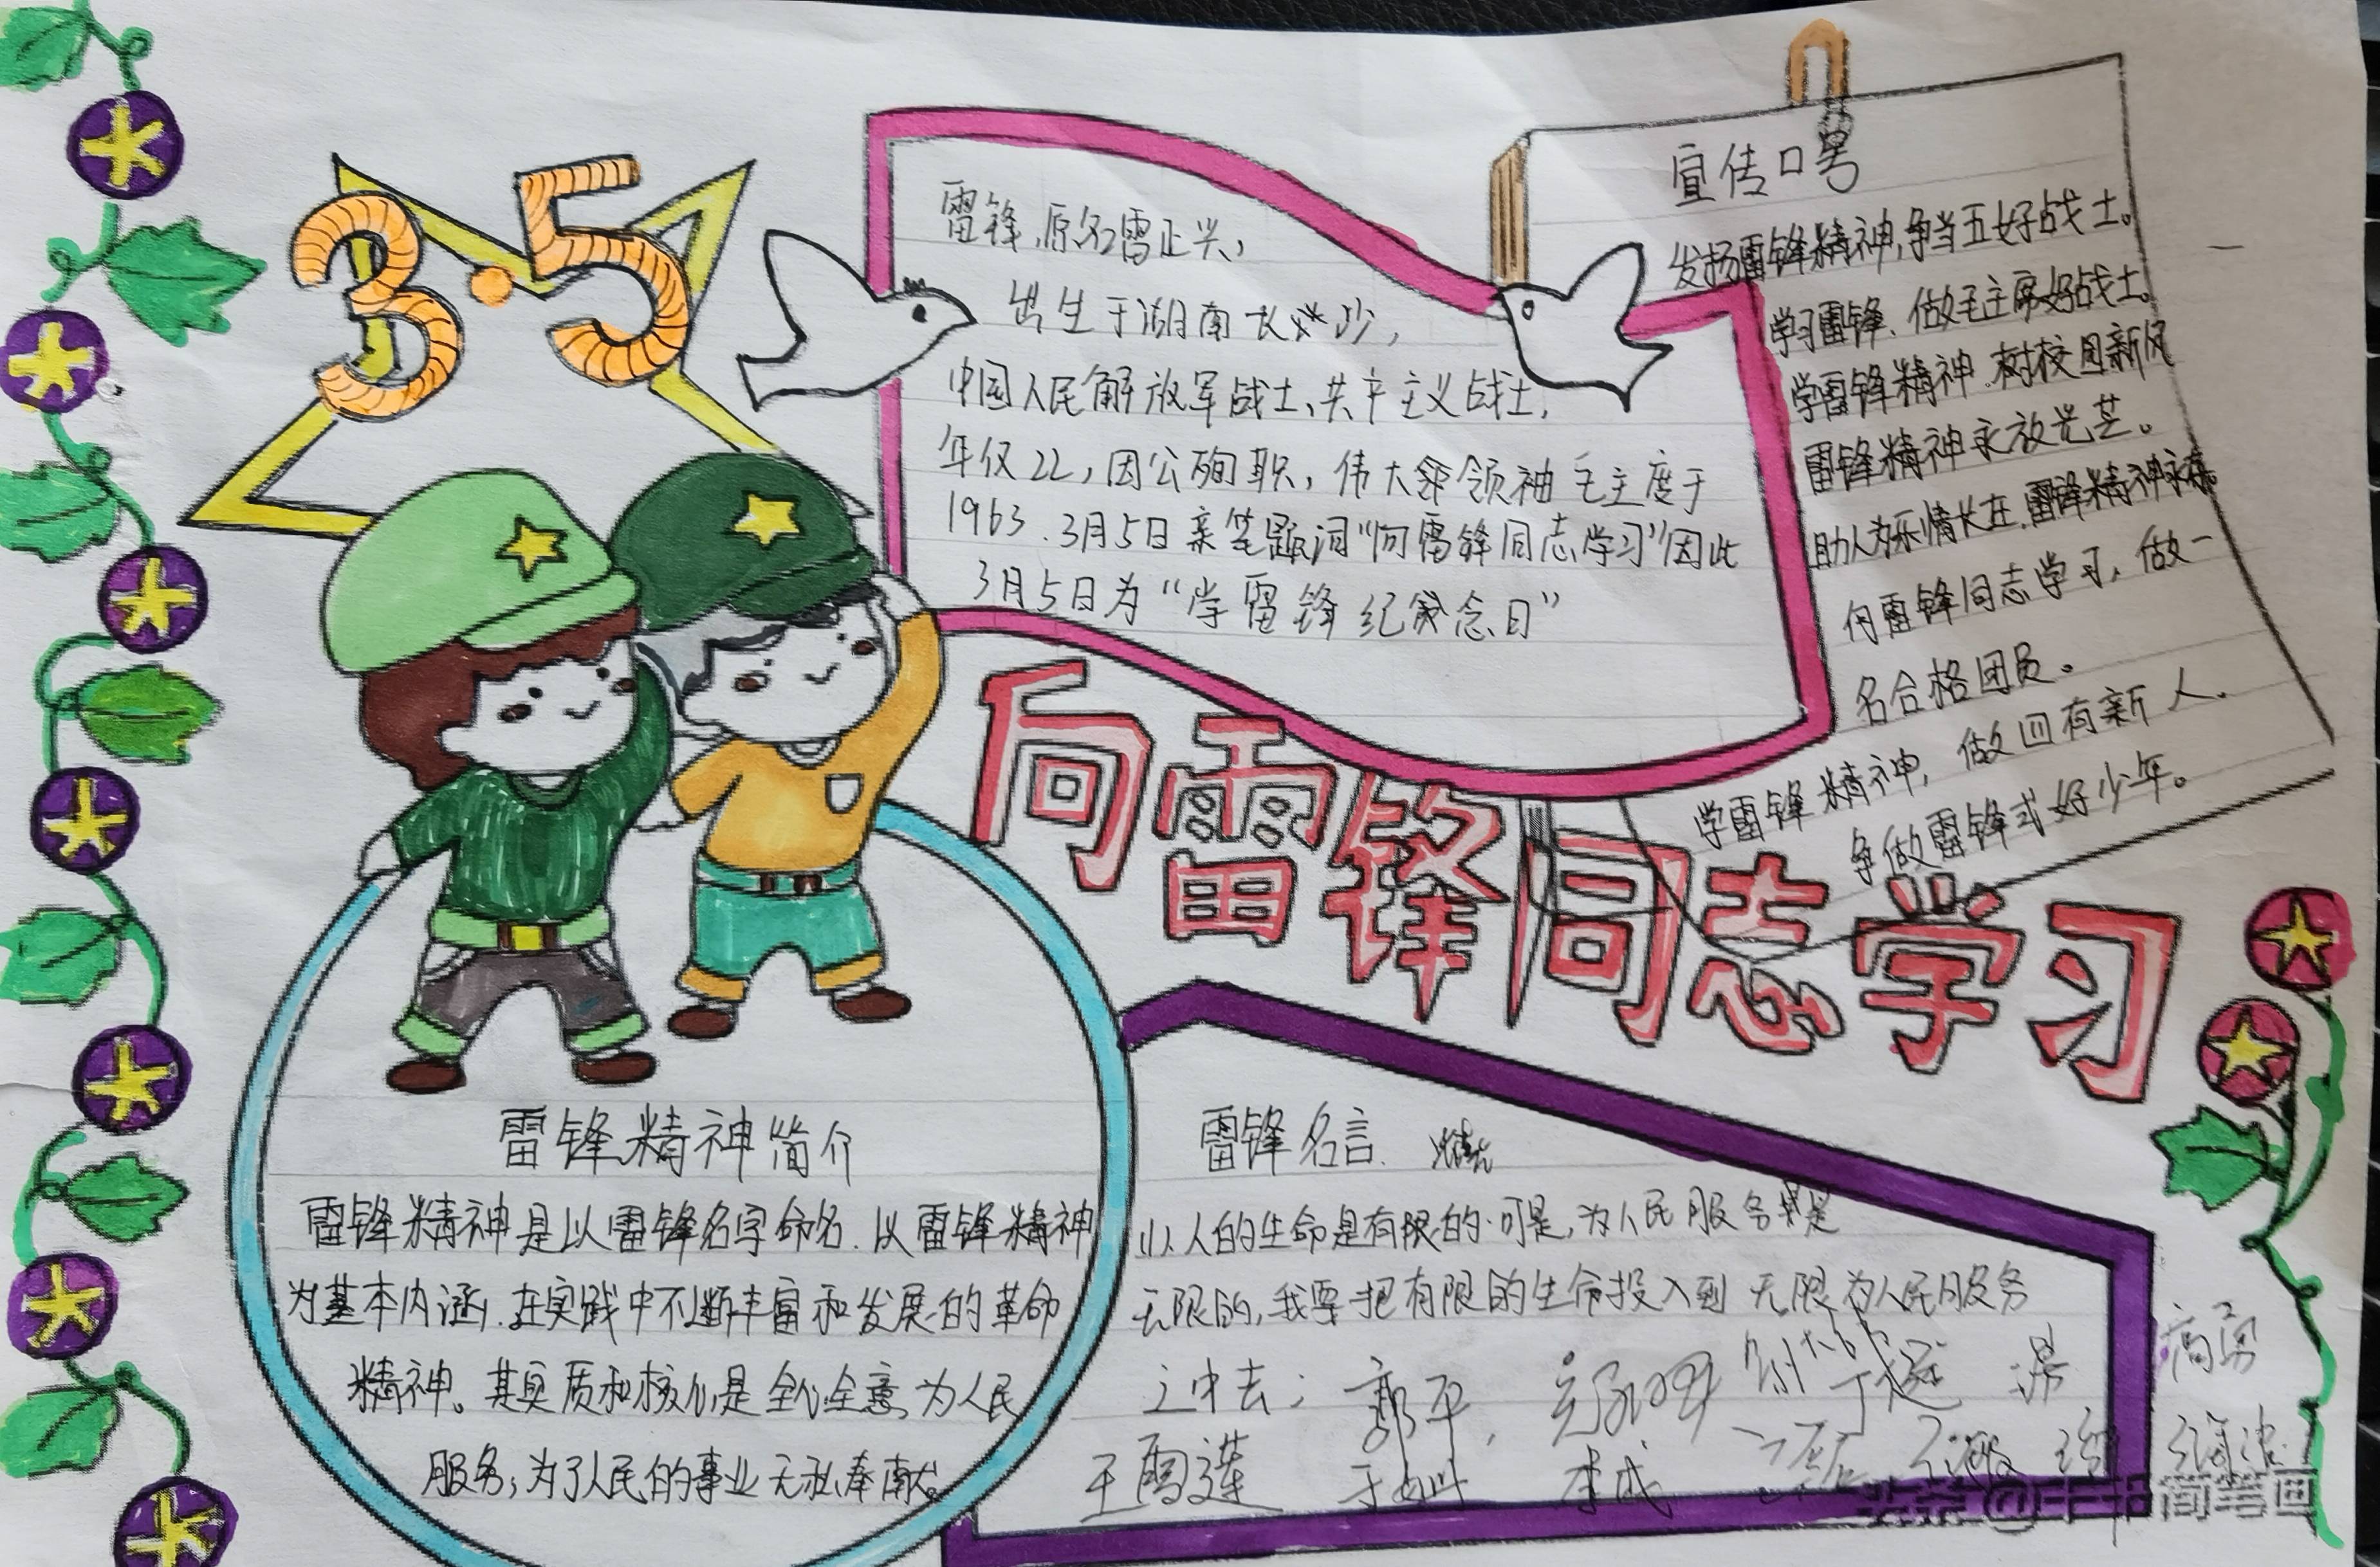 3·5
雷锋,原名雷正兴,
出生于湖南长沙,
中国人民解放军战士、共产主义战士,
年仅22,因公殉职,伟大领袖毛主度于
1963.3月5日亲笔题词"向雷锋同志学习"因此
3月5日为"学雷锋纪念日"
宣传口号
发扬雷锋精神,争当五好战士。
学习雷锋、做毛主席好战士。
学雷锋精神.树校园新风
雷锋精神永放光芒。
助人为乐情长在,雷锋精神永存。
向雷锋同志学习,做一
名合格团员。
学雷锋精神,做四有新人.
争做雷锋式好少年。
向雷锋同志学习
雷锋精神简介
雷锋精神是以雷锋名字命名.以雷锋精神
为基本内涵.在实践中不断丰富和发展的革命
精神。其实质和核心是全心全意为人民
服务,为了人民的事业无私奉献。
雷锋名言.
以人的生命是有限的.可是,为人民服务是
无限的,我要把有限的生命投入到无限为人民服务
之中去;
郭平,
高勇
王雪莲
李成
简笔画